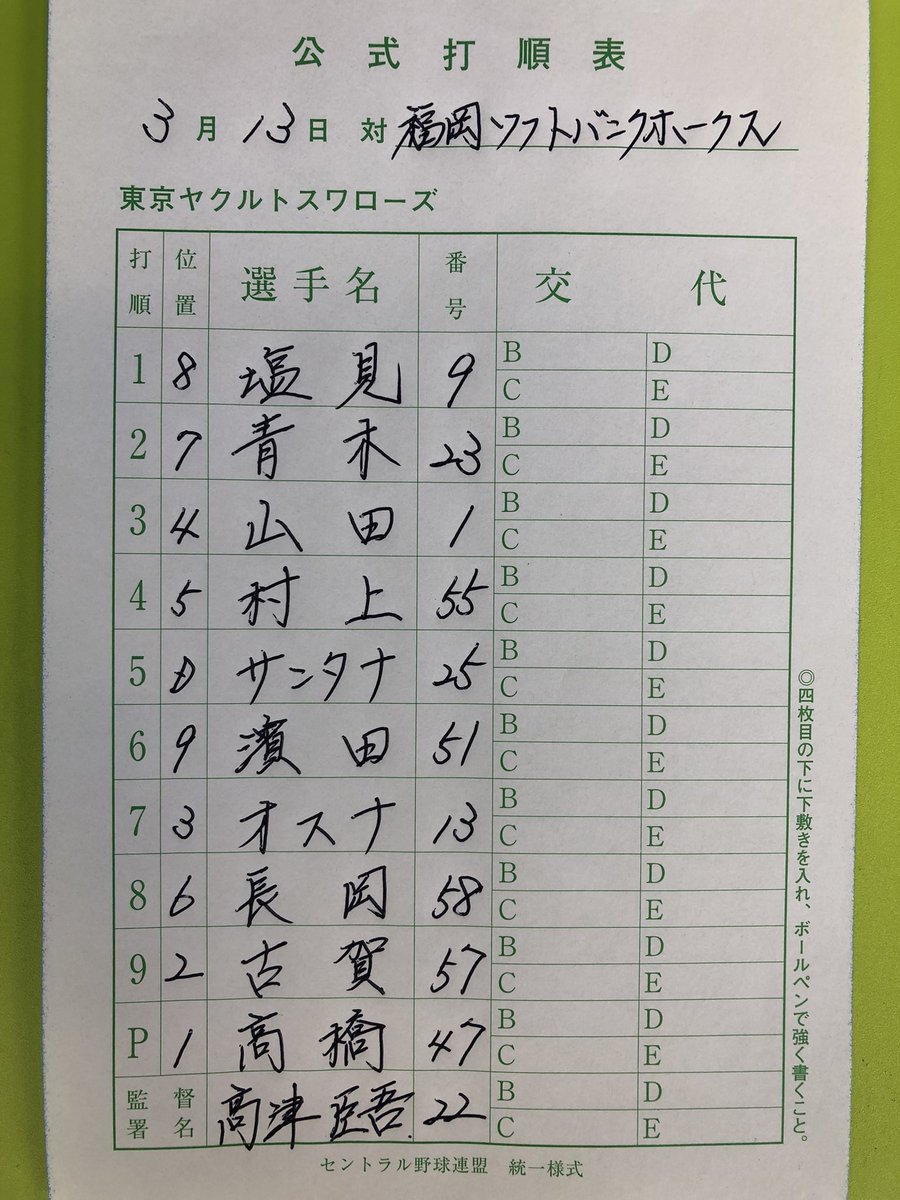 公式打順表
3月13日 対 福岡ソフトバンクホークス
東京ヤクルトスワローズ
打順 位置 選手名 番号 交代
1 8 塩見 9 B D C E
2 7 青木 23 B D C E
3 4 山田 1 B D C E
4 5 村上 55 B D C E
5 D サンタナ 25 B D C E
6 9 濱田 51 B D C E
7 3 オスナ 13 B D C E
8 6 長岡 58 B D C E
9 2 古賀 57 B D C E
P 1 高橋 47 B D C E
監督署名 高津臣吾 22 B D C E
セントラル野球連盟 統一様式
◎四枚目の下に下敷きを入れ、ボールペンで強く書くこと。